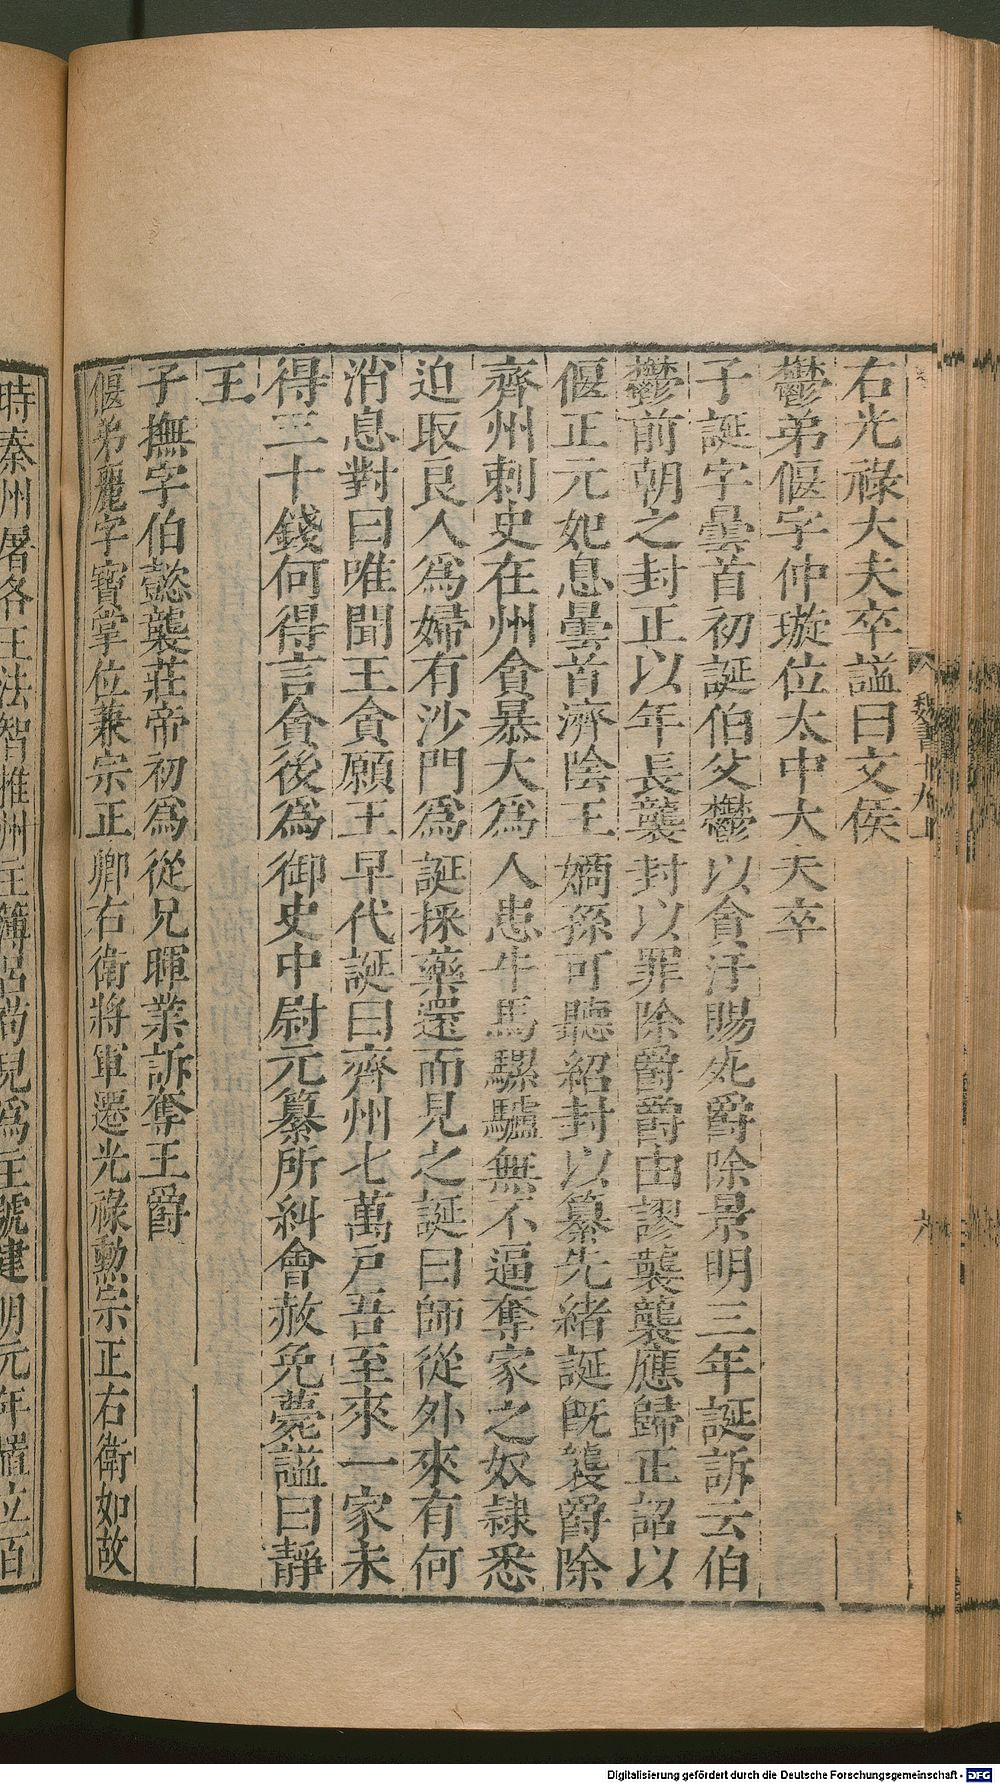 魏書十九上
六
右光祿大夫卒謚曰文侯
鬱弟偃字仲璇位太中大夫卒
子誕字曇首初誕伯父鬱以貪汙賜死爵除景明三年誕訴云伯
鬱前朝之封正以年長襲封以罪除爵爵由謬襲襲應歸正詔以
偃正元妃息曇首濟陰王嫡孫可聽紹封以纂先緒誕既襲爵除
齊州刺史在州貪暴大為人患牛馬騾驢無不逼奪家之奴隸悉
迫取良人為婦有沙門為誕採藥還而見之誕曰師從外來有何
消息對曰唯聞王貪願王早代誕曰齊州七萬戶吾至來一家未
得三十錢何得言貪後為御史中尉元纂所糾會赦免薨謚曰靜
王
子撫字伯懿襲莊帝初為從兄暉業訴奪王爵
偃弟麗字寶掌位兼宗正卿右衛將軍遷光祿勳宗正右衛如故
時秦州屠各王法智推州主簿呂苟兒為主號建明元年置立百
Digitalisierung gefördert durch die Deutsche Forschungsgemeinschaft - DFG